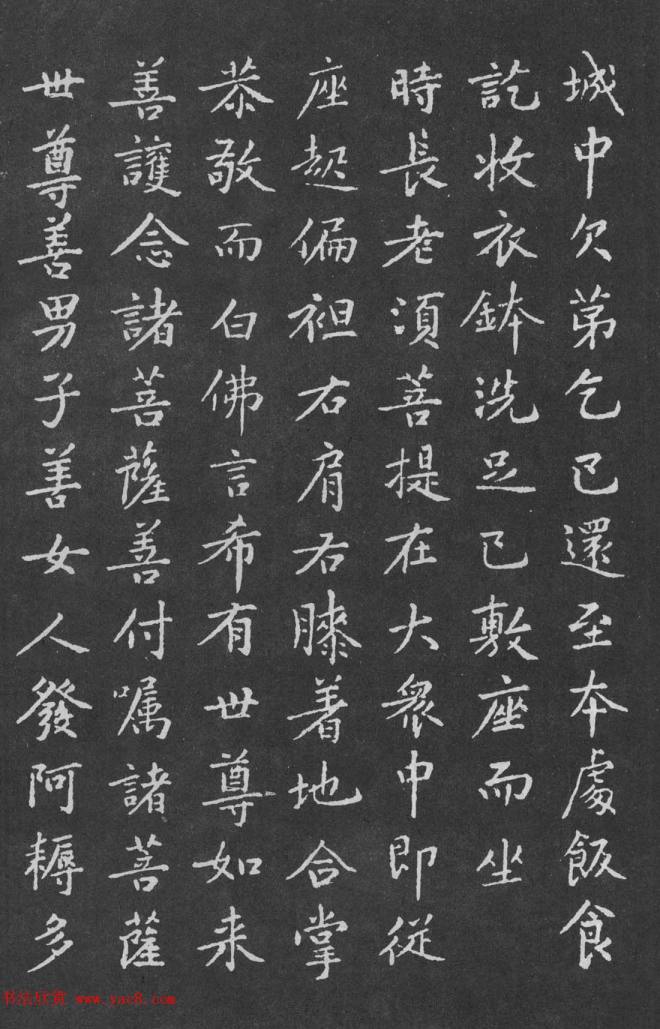 城中次苐乞已還至本處飯食
訖收衣鉢洗足已敷座而坐
時長老湏菩提在大衆中即從
座起偏袒右肩右膝着地合掌
恭敬而白佛言希有世尊如来
善護念諸菩薩善付嘱諸菩薩
世尊善男子善女人發阿耨多
书法欣赏 www.yac8.com